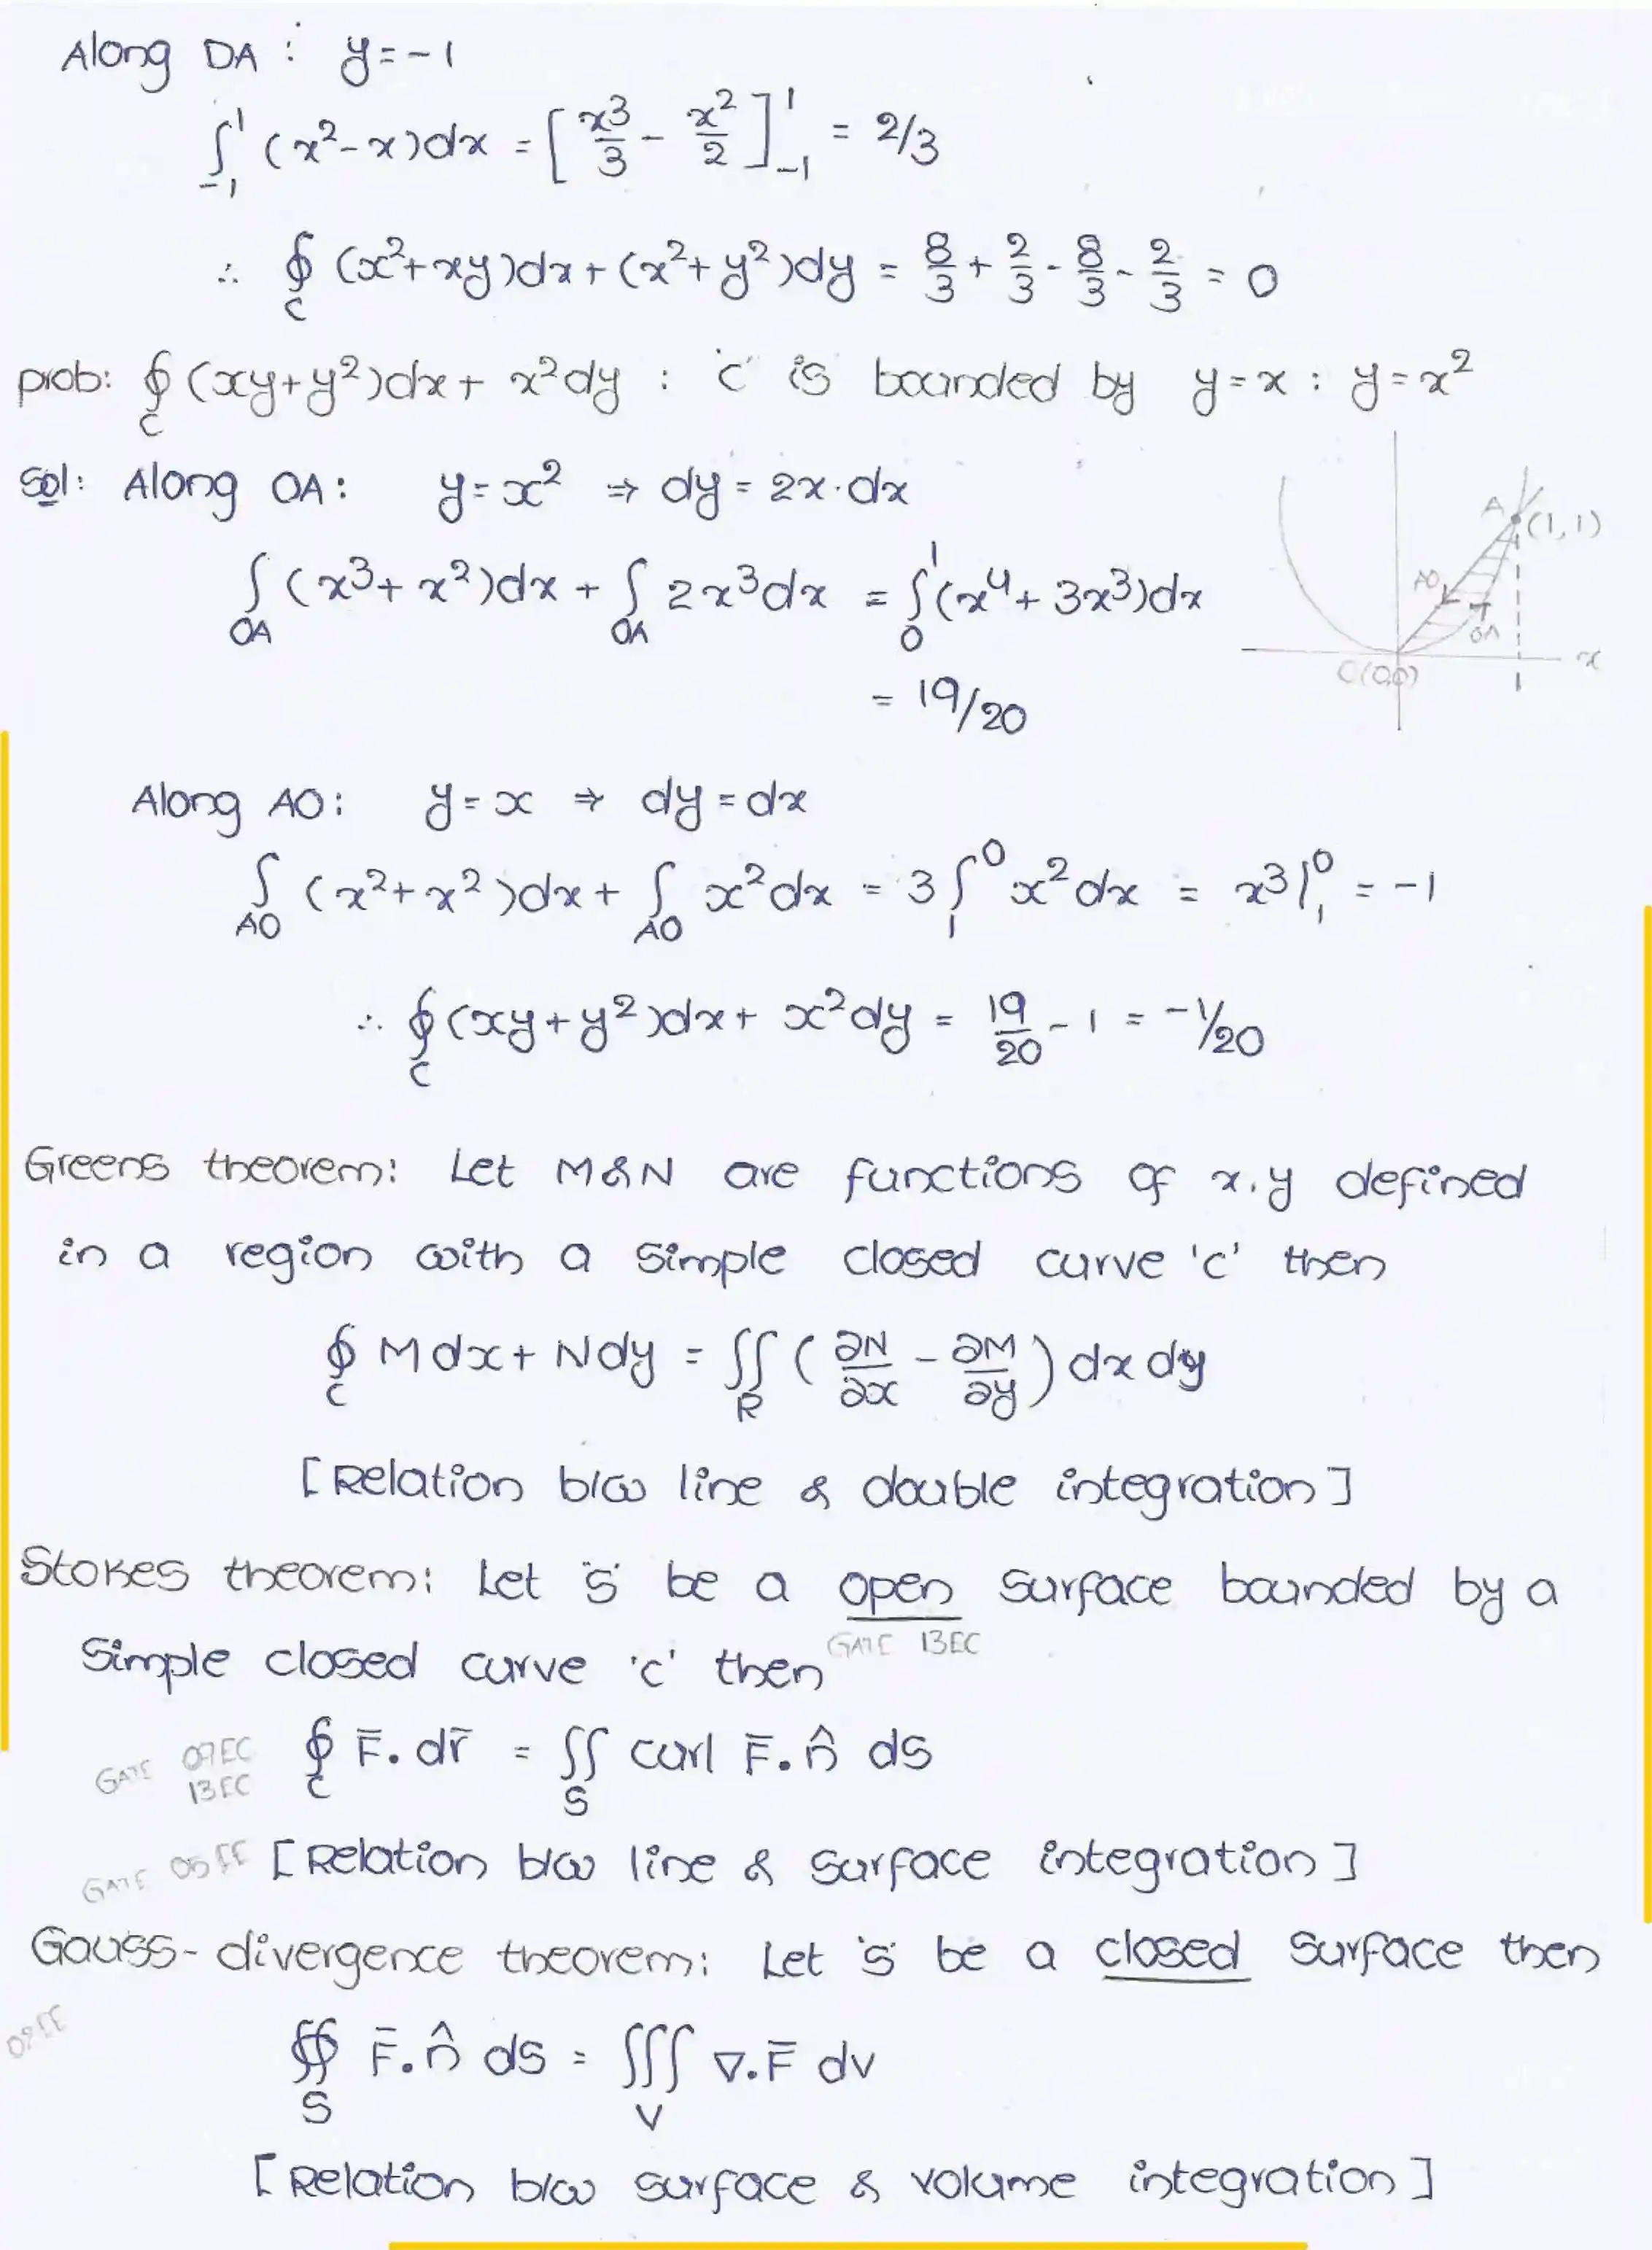 Along DA : y = -1
∫₋₁¹ (x² - x)dx = [x³/3 - x²/2]₋₁¹ = 2/3
∴ ∮_C (x² + xy)dx + (x² + y²)dy = 8/3 + 2/3 - 8/3 - 2/3 = 0
prob: ∮_C (xy + y²)dx + x²dy : 'C' is bounded by y = x : y = x²
Sol: Along OA : y = x² ⇒ dy = 2x·dx
∫_OA (x³ + x²)dx + ∫_OA 2x³dx = ∫₀¹ (x⁴ + 3x³)dx
= 19/20
A (1,1)
AO
OA
O(0,0)
1
x
Along AO : y = x ⇒ dy = dx
∫_AO (x² + x²)dx + ∫_AO x²dx = 3∫₁⁰ x²dx = x³|₁⁰ = -1
∴ ∮_C (xy + y²)dx + x²dy = 19/20 - 1 = -1/20
Greens theorem: Let M & N are functions of x,y defined
in a region with a simple closed curve 'c' then
∮_C Mdx + Ndy = ∬_R (∂N/∂x - ∂M/∂y) dx dy
[Relation b/w line & double integration]
Stokes theorem: Let 's' be a open surface bounded by a
GATE 13EC
Simple closed curve 'c' then
GATE 09EC 13EC
∮_C F̄. dr̄ = ∬_S curl F̄. n̂ ds
GATE 05EE [Relation b/w line & surface integration]
Gauss-divergence theorem: Let 's' be a closed surface then
∯_S F̄. n̂ ds = ∭_V ∇.F̄ dv
[Relation b/w surface & volume integration]